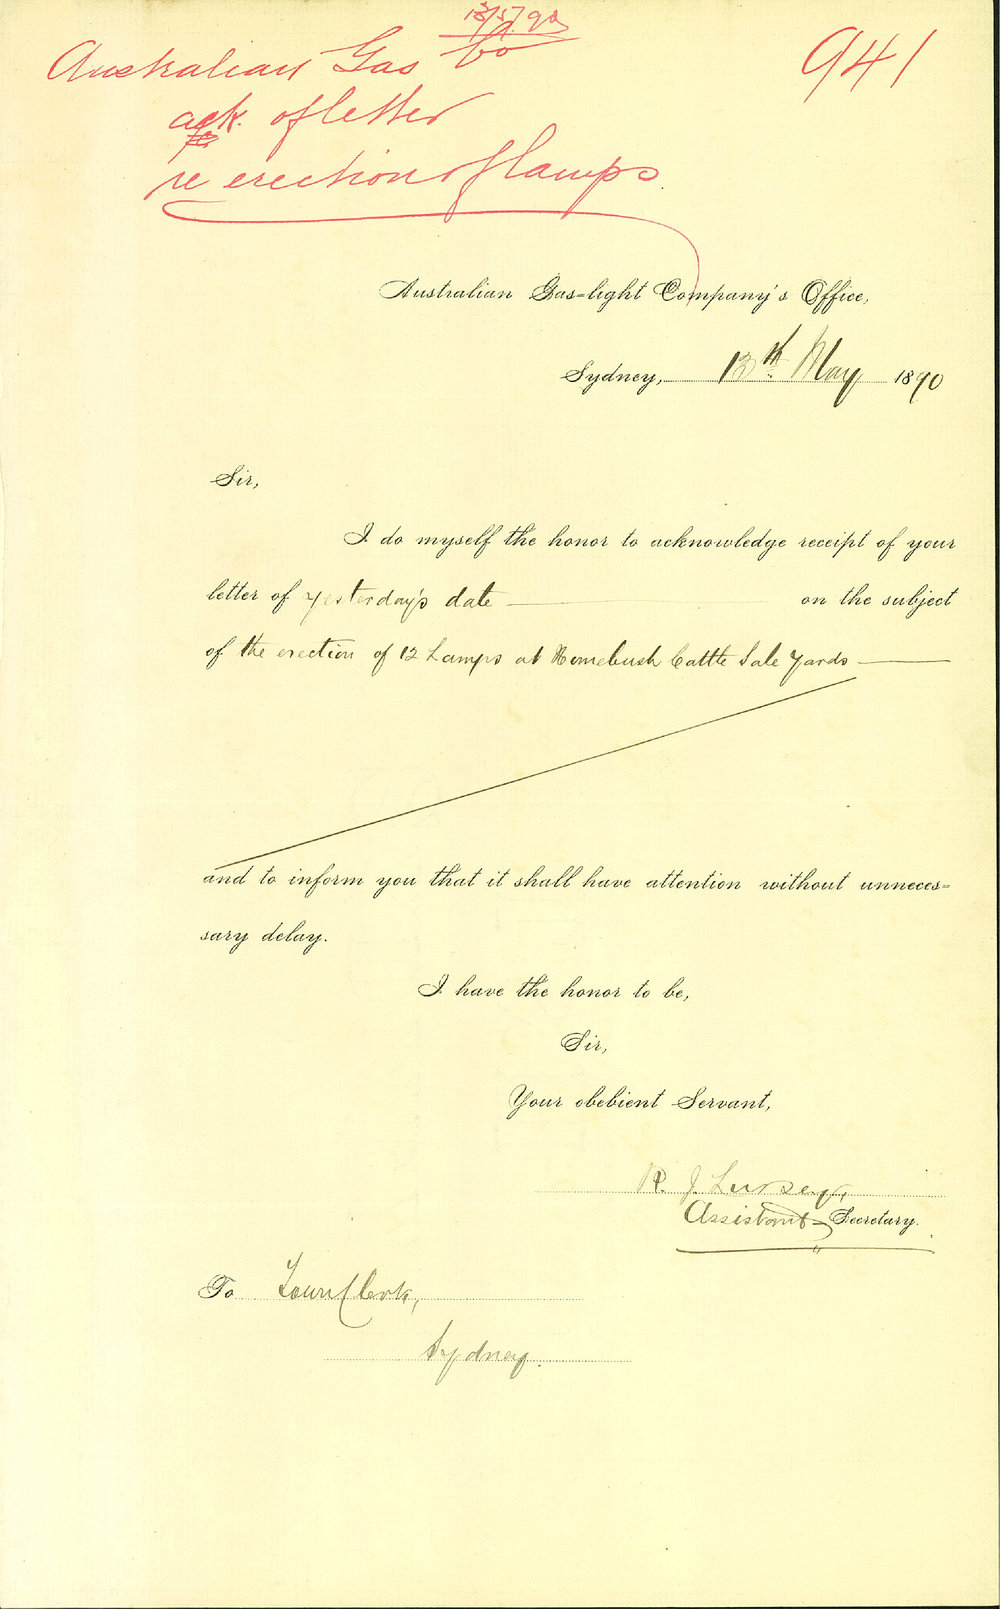 13/5/90
Australian Gas Co
ack. of letter
re erection of lamps
941
Australian Gas=light Company's Office,
Sydney, 13th May 1890
Sir,
I do myself the honor to acknowledge receipt of your
letter of yesterday's date on the subject
of the erection of 12 Lamps at Homebush Cattle Sale Yards
and to inform you that it shall have attention without unneces=
sary delay.
I have the honor to be,
Sir,
Your obebient Servant,
R. J.
Assistant Secretary.
To Town Clerk,
Sydney.